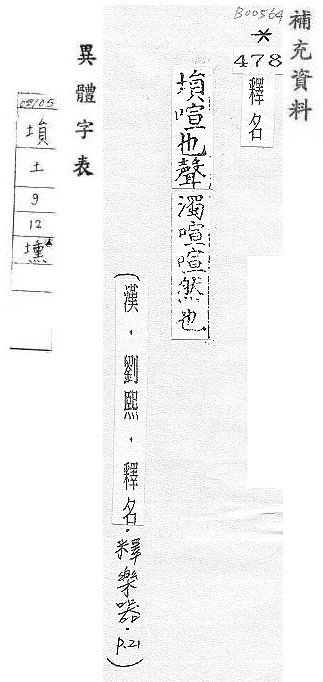 B00564
補充資料
*
478
釋名
塤喧也聲濁喧喧然也
(漢.劉熙.釋名.釋樂器.P.21)
異體字表
塤
土
9
12
壎